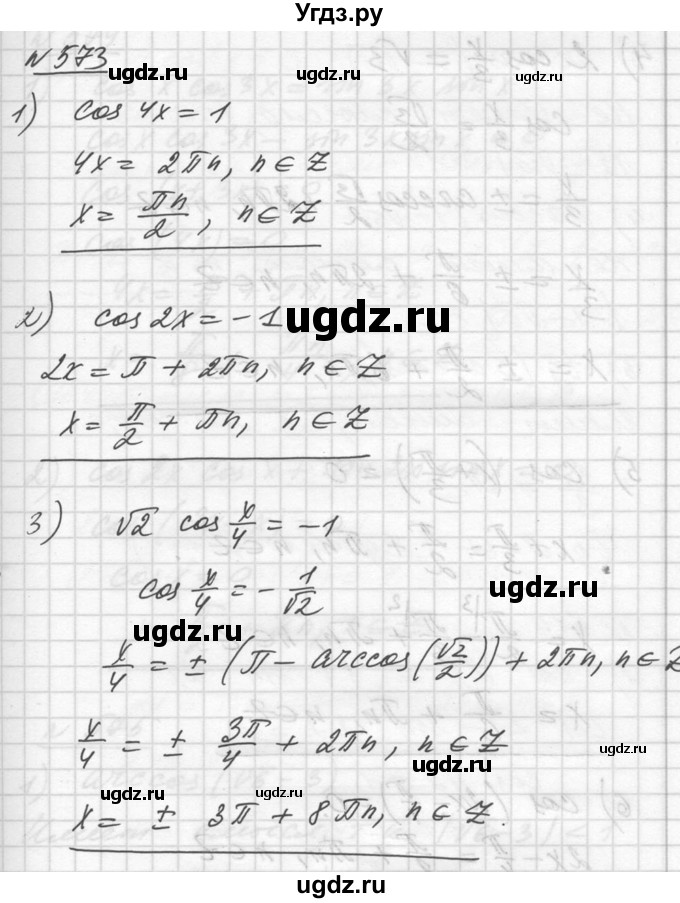 Угдз.ру
№ 573
ugdz.ru ugdz.ru ugdz.ru
1) cos 4x = 1
4x = 2πn, n ∈ Z
ugdz.ru ugdz.ru
x = πn/2, n ∈ Z
2) cos 2x = -1
ugdz.ru
2x = π + 2πn, n ∈ Z
x = π/2 + πn, n ∈ Z
3) √2 cos x/4 = -1
cos x/4 = - 1/√2
ugdz.ru
ugdz.ru
x/4 = ± (π - arccos(√2/2)) + 2πn, n ∈ Z
x/4 = ± 3π/4 + 2πn, n ∈ Z
ugdz.ru ugdz.ru
ugdz.ru ugdz.ru
x = ± 3π + 8πn, n ∈ Z.
ugdz.ru